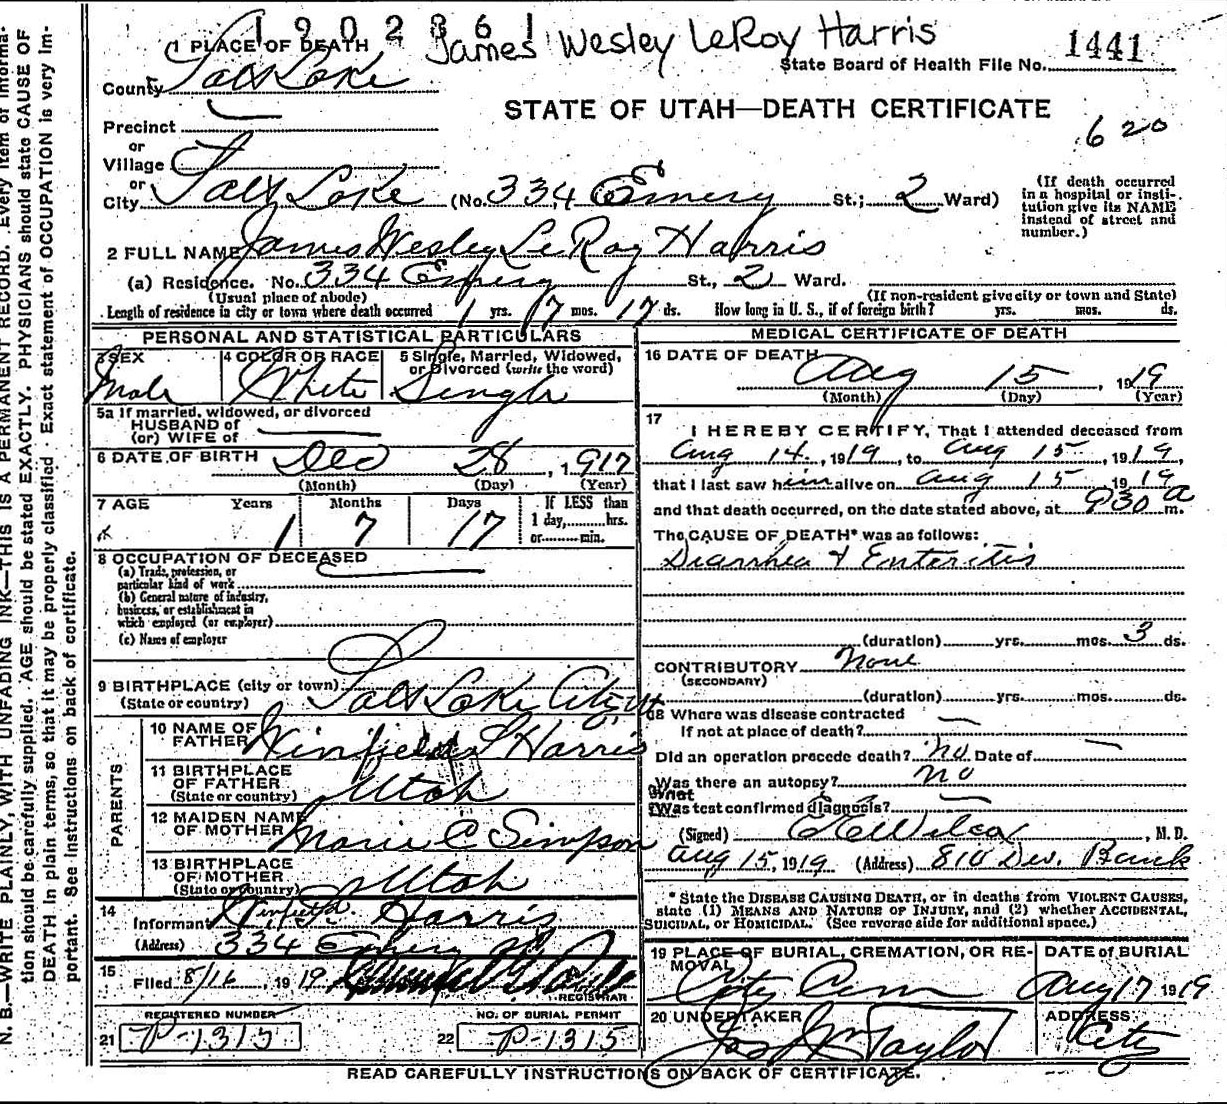 1902361
James Wesley LeRoy Harris
(1 PLACE OF DEATH
State Board of Health File No. 1441
County Salt Lake
STATE OF UTAH—DEATH CERTIFICATE
Precinct
620
or
Village
or
City Salt Lake (No. 334 Emery St.; 2 Ward)
(If death occurred in a hospital or insti-
tution give its NAME instead of street and number.)
2 FULL NAME James Wesley LeRoy Harris
(a) Residence. No. 334 Emery St., 2 Ward.
(Usual place of abode) (If non-resident give city or town and State)
Length of residence in city or town where death occurred 1 yrs. 7 mos. 17 ds. How long in U. S., if of foreign birth? yrs. mos. ds.
PERSONAL AND STATISTICAL PARTICULARS
3 SEX 4 COLOR OR RACE 5 Single, Married, Widowed,
or Divorced (write the word)
Male White Single
5a If married, widowed, or divorced
HUSBAND of
(or) WIFE of
6 DATE OF BIRTH Dec 28, 1917
(Month) (Day) (Year)
7 AGE Years Months Days If LESS than
1 7 17 1 day, hrs.
or min.
8 OCCUPATION OF DECEASED
(a) Trade, profession, or
particular kind of work
(b) General nature of industry,
business, or establishment in
which employed (or employer)
(c) Name of employer
9 BIRTHPLACE (city or town) Salt Lake City Ut
(State or country)
PARENTS
10 NAME OF
FATHER Winfield S Harris
11 BIRTHPLACE
OF FATHER Utah
(State or country)
12 MAIDEN NAME
OF MOTHER Marie C Simpson
13 BIRTHPLACE
OF MOTHER Utah
(State or country)
14
Informant Winfield S. Harris
(Address) 334 Emery
15
Filed 8/16, 1919
REGISTRAR
REGISTERED NUMBER NO. OF BURIAL PERMIT
21 P-1315 22 P-1315
MEDICAL CERTIFICATE OF DEATH
16 DATE OF DEATH
Aug 15, 1919
(Month) (Day) (Year)
17
I HEREBY CERTIFY, That I attended deceased from
Aug 14, 1919, to Aug 15, 1919,
that I last saw him alive on Aug 15 1919
and that death occurred, on the date stated above, at 930 a m.
The CAUSE OF DEATH* was as follows:
Diarrhea & Enteritis
(duration) yrs. mos. 3 ds.
CONTRIBUTORY None
(SECONDARY)
(duration) yrs. mos. ds.
18 Where was disease contracted
If not at place of death?
Did an operation precede death? no Date of
Was there an autopsy? no
What
Was test confirmed diagnosis?
(Signed) , M. D.
Aug 15, 1919 (Address) 810 Des. Bank
* State the DISEASE CAUSING DEATH, or in deaths from VIOLENT CAUSES,
state (1) MEANS AND NATURE OF INJURY, and (2) whether ACCIDENTAL,
SUICIDAL, or HOMICIDAL. (See reverse side for additional space.)
19 PLACE OF BURIAL, CREMATION, OR RE-
MOVAL
City Cem
DATE of BURIAL
Aug 17 1919
20 UNDERTAKER
Jos Wm Taylor
ADDRESS
City
READ CAREFULLY INSTRUCTIONS ON BACK OF CERTIFICATE.
N. B.—WRITE PLAINLY, WITH UNFADING INK—THIS IS A PERMANENT RECORD. Every item of informa-
tion should be carefully supplied. AGE should be stated EXACTLY. PHYSICIANS should state CAUSE OF
DEATH in plain terms, so that it may be properly classified. Exact statement of OCCUPATION is very im-
portant. See instructions on back of certificate.